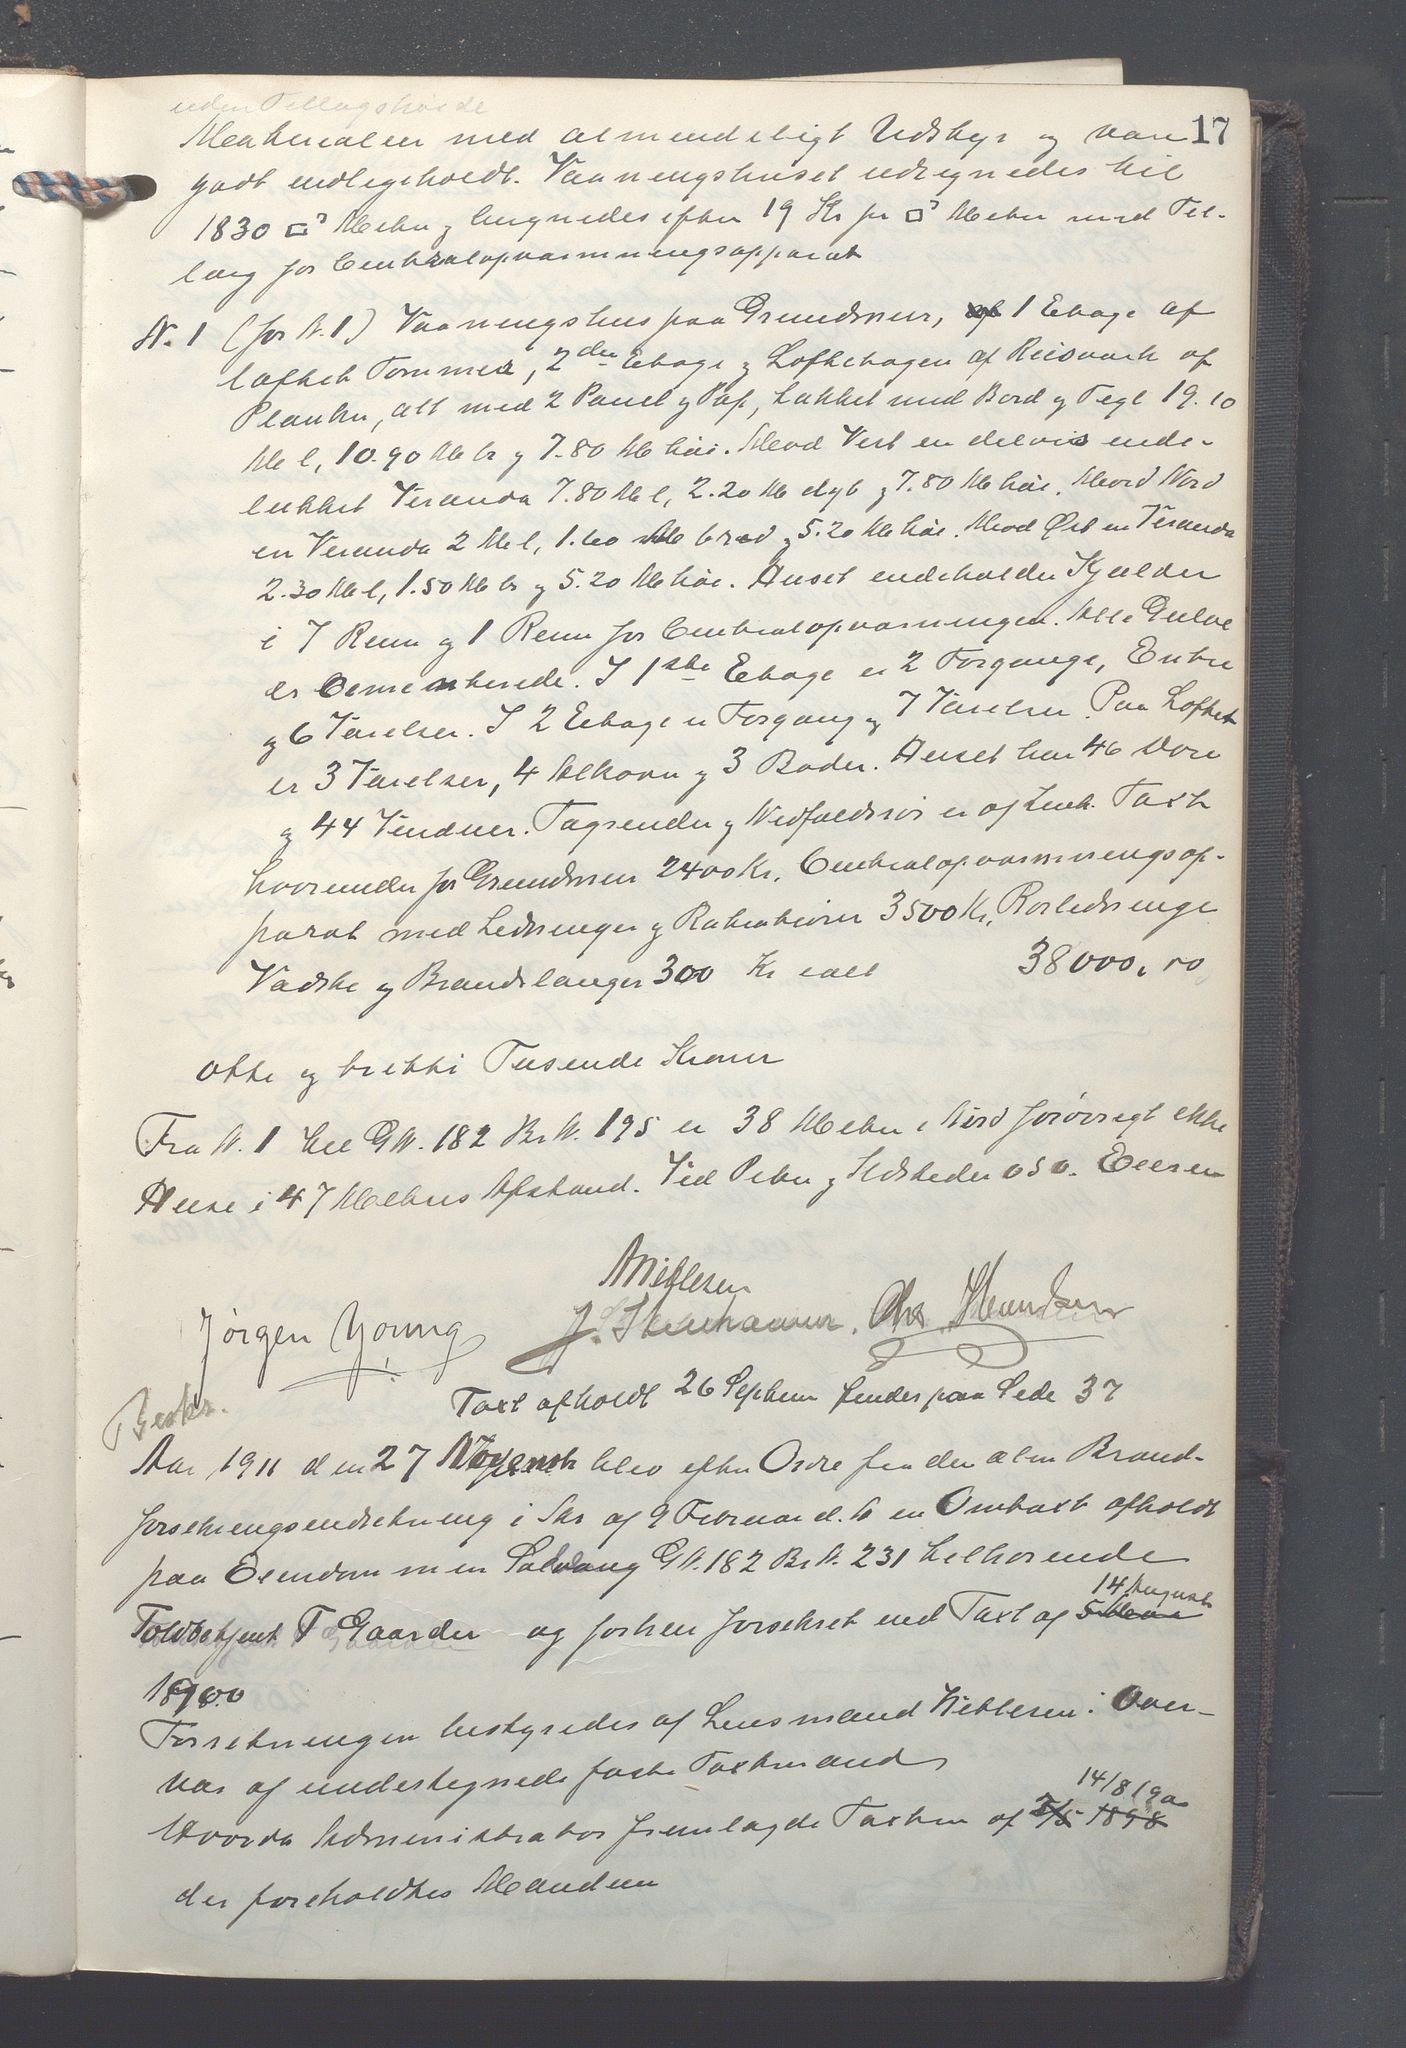 17
uden Tillagshøide
Materialer med almindeligt Udstyr og var
godt vedligeholdt. Vaaningshuset udregnedes til
1830 □³ Meter og beregnedes efter 19 Kr pr □³ Meter med Til-
læg for Centralopvarmningsapparat
N. 1 (før N. 1) Vaaningshus paa Grundmur, 1 Etage af
laftet Tømmer, 2den Etage og Loftetagen af Reisværk af
Planker, alt med 2 Panel og Pap, tækket med Bord og Tegl 19.10
M l, 10.90 M br og 7.80 M høi. Mod Vest en delvis inde-
lukket Veranda 7.80 M l, 2.20 M dyb og 7.80 M høi. Mod Nord
en Veranda 2 M l, 1.60 M bred og 5.20 M høi. Mod Øst en Veranda
2.30 M l, 1.50 M br og 5.20 M høi. Huset indeholder Kjælder
i 7 Rum og 1 Rum for Centralopvarmningen. Alle Gulve
er Cementerede. I 1ste Etage er 2 Forgange, Entre
og 6 Værelser. I 2 Etage er Forgang og 7 Værelser. Paa Loftet
er 3 Værelser, 4 Alkover og 3 Boder. Huset har 46 Døre
og 44 Vinduer. Tagrender og Nedfaldsrør er af Zink. Taxt
hvorunder for Grundmur 2400 Kr, Centralopvarmningsap-
parat med Ledninger og Radiatorer 3500 Kr, Rørledninge
Vadske og Brandslanger 300 Kr ialt 38000,00
otte og tretti Tusende Kroner
Fra N. 1 til G N. 182 Br N. 195 er 38 Meter i Nord forøvrigt ikke
Huse i 47 Meters Afstand. Ved Piber og Ildsteder 0 50. Eieren
Jørgen Young
Chr
Taxt afholdt 26 Septem findes paa Side 37
Beskr.
Aar 1911 den 27 blev efter Ordre fra den alm Brand-
forsikringsindretning i Skr af 9 Februar d. A en Omtaxt afholdt
paa Eiendommen Solvang G N. 182 Br N. 231 tilhørende
14 August
Toldbetjent T Gaarder og forhen forsikret ved Taxt af
1900
Forretningen bestyredes af Lensmand i Over-
vær af undertegnede faste Taxtmænd
14/8 1900
Hvorda Administrator fremlagde Taxten af 5/5 1898
der foreholdtes Mændene